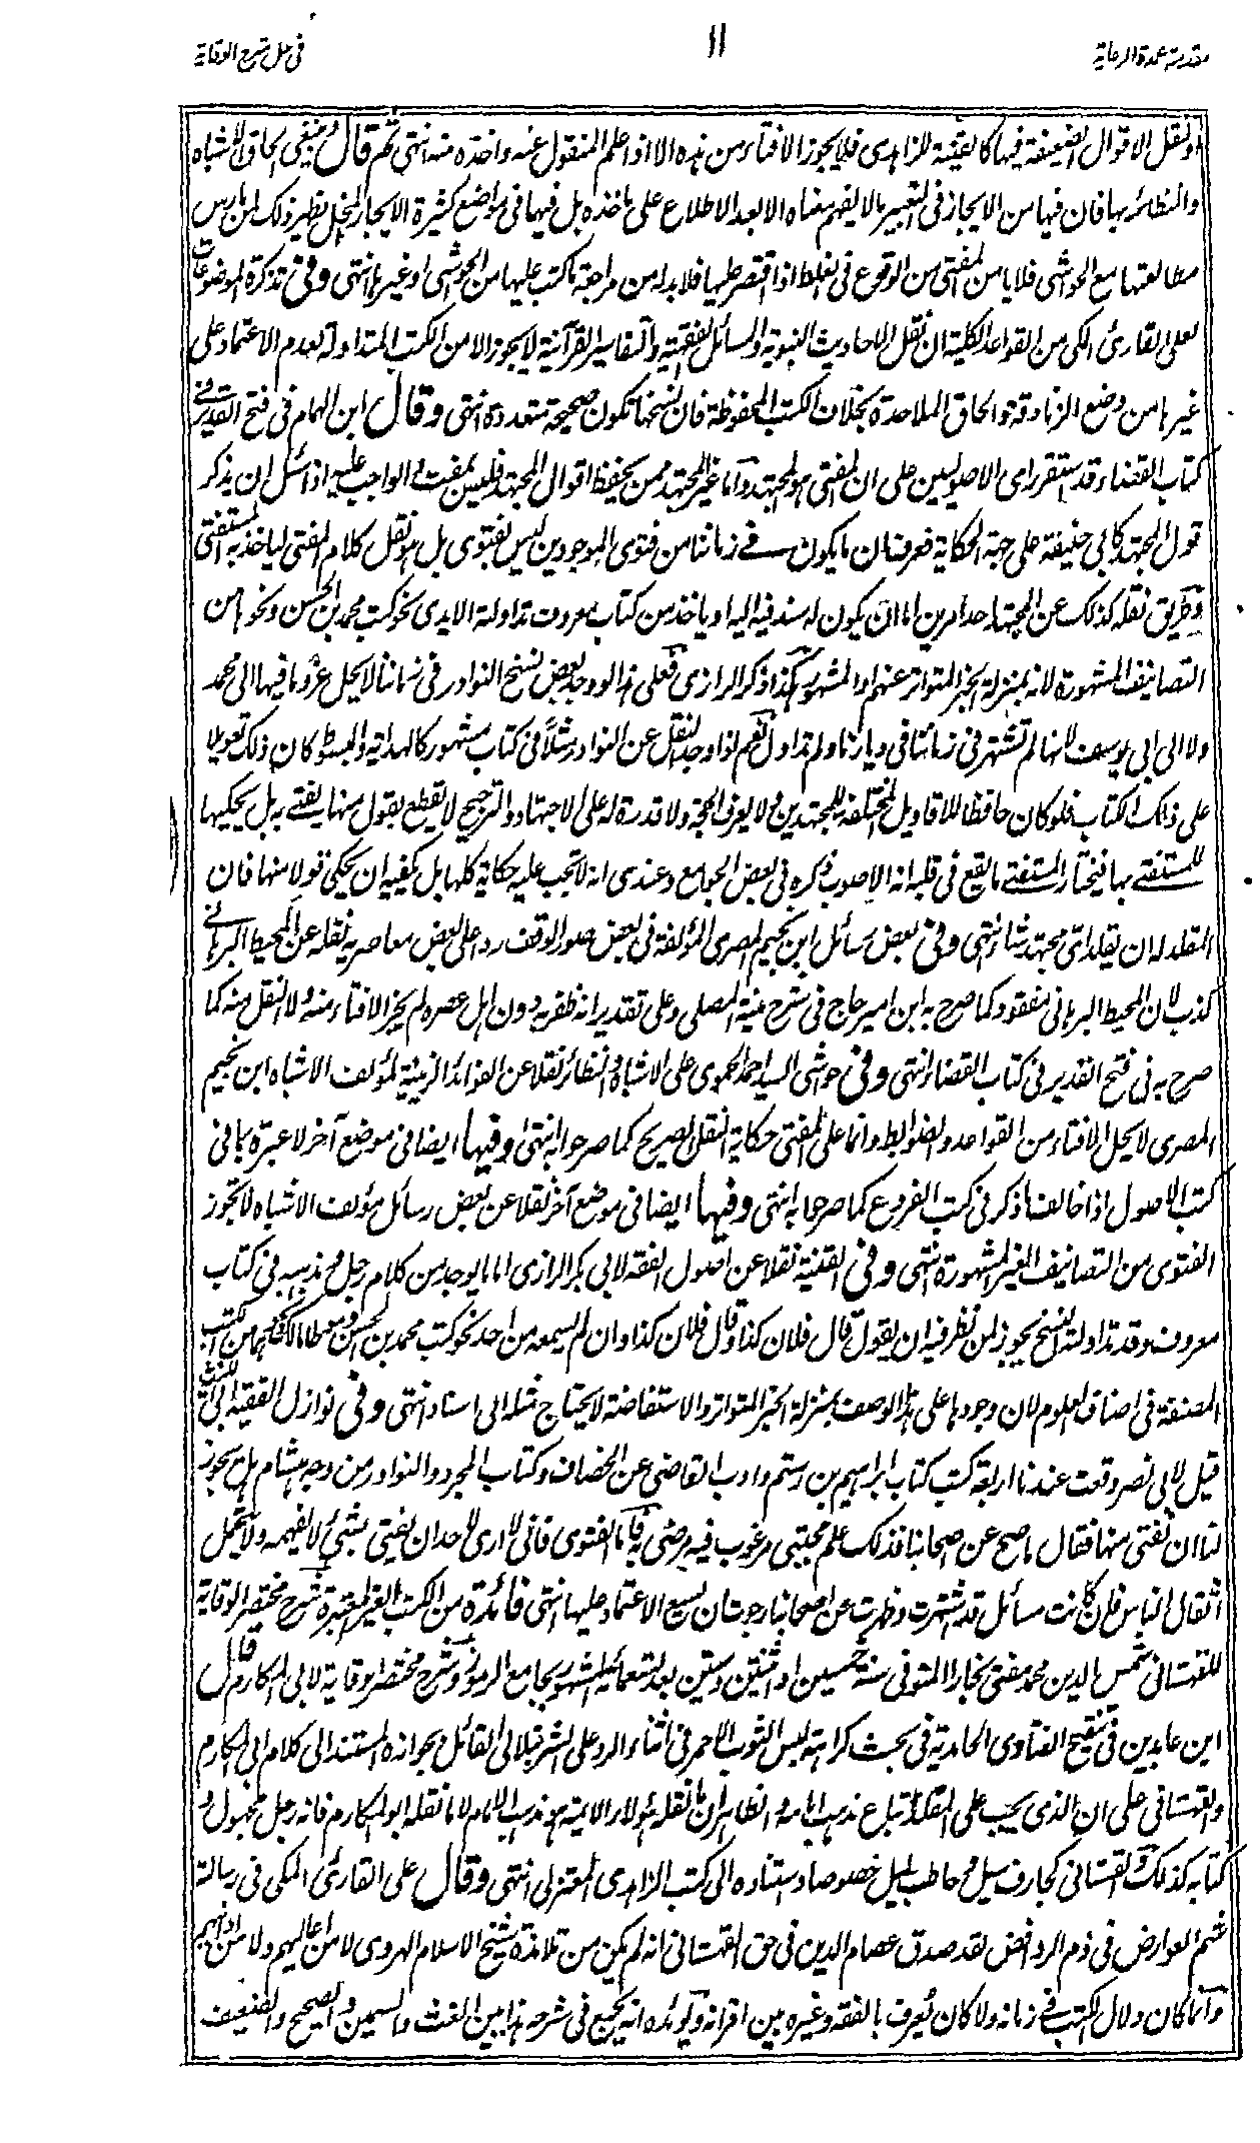 مقدمة عمدة الرعاية
١١
في حل شرح الوقاية
او لنقل الاقوال الضعيفة فيها كالقنية للزاهدي فلا يجوز الافتاء من هذه الا اذا علم المنقول عنه واخذه منه انتهى ثم قال وينبغي الحاق الاشباه
والنظائر بها فان فيها من الايجاز في التعبير ما لا يفهم معناه الا بعد الاطلاع على ماخذه بل فيها في مواضع كثيرة الايجاز المخل يظهر ذلك لمن مارس
مطالعتها مع الحواشي فلا يامن المفتي من الوقوع في الغلط اذا اقتصر عليها فلا بد له من مراجعة ما كتب عليها من الحواشي او غيرها انتهى وفي تذكرة الموضوعات
لعلي القاري المكي من القواعد الكلية ان نقل الاحاديث النبوية والمسائل الفقهية والتفاسير القرآنية لا يجوز الا من الكتب المتداولة لعدم الاعتماد على
غيرها من وضع الزنادقة والحاق الملاحدة بخلاف الكتب المحفوظة فان نسخها تكون صحيحة متعددة انتهى وقال ابن الهمام في فتح القدير في
كتاب القضاء قد استقر راى الاصوليين على ان المفتي هو المجتهد واما غير المجتهد ممن يحفظ اقوال المجتهد فليس بمفت والواجب عليه اذا سئل ان يذكر
قول المجتهد كابي حنيفة على جهة الحكاية فعرف ان ما يكون في زماننا من فتوى الموجودين ليس بفتوى بل هو نقل كلام المفتي لياخذ به المستفتي
وطريق نقله كذلك عن المجتهد احد امرين اما ان يكون له سند فيه اليه او ياخذ من كتاب معروف تداولته الايدي نحو كتب محمد بن الحسن ونحوها من
التصانيف المشهورة لانه بمنزلة الخبر المتواتر عنهم او المشهور هكذا ذكر الرازي فعلى هذا لو وجد بعض نسخ النوادر في زماننا لا يحل عزو ما فيها الى محمد
ولا الى ابي يوسف لانها لم تشتهر في زماننا في ديارنا ولم تتداول نعم لو وجد النقل عن النوادر مثلا في كتاب مشهور كالهداية والمبسوط كان ذلك تعويلا
على ذلك الكتاب فلو كان حافظا للاقاويل المختلفة للمجتهدين ولا يعرف الحجة ولا قدرة له على الاجتهاد والترجيح لا يقطع بقول منها يفتي به بل يحكيها
للمستفتي بها فيختار المستفتي ما يقع في قلبه انه الاصوب ذكره في بعض الجوامع وعندي انه لا تجب عليه حكاية كلها بل يكفيه ان يحكي قولا منها فان
المقلد له ان يقلد اي مجتهد شاء انتهى وفي بعض رسائل ابن نجيم المصري المؤلفة في بعض صور الوقف ردا على بعض معاصريه نقله عن المحيط البرهاني
كذب لان المحيط البرهاني مفقود كما صرح به ابن امير حاج في شرح منية المصلي وعلى تقدير انه ظفر به دون اهل عصره لم يجز الافتاء منه ولا النقل منه كما
صرح به في فتح القدير في كتاب القضاء انتهى وفي حواشي السيد احمد الحموي على الاشباه والنظائر نقلا عن الفوائد الزينية لمؤلف الاشباه ابن نجيم
المصري لا يحل الافتاء من القواعد والضوابط وانما على المفتي حكاية النقل الصريح كما صرحوا به انتهى وفيها ايضا في موضع آخر لا عبرة بما في
كتب الاصول اذا خالف ما ذكر في كتب الفروع كما صرحوا به انتهى وفيها ايضا في موضع آخر نقلا عن بعض رسائل مؤلف الاشباه لا تجوز
الفتوى من التصانيف الغير المشهورة انتهى وفي القنية نقلا عن اصول الفقه لابي بكر الرازي اما ما يوجد من كلام رجل ومذهبه في كتاب
معروف وقد تداولته النسخ يجوز لمن نظر فيه ان يقول قال فلان كذا وقال فلان كذا وان لم يسمعه من احد نحو كتب محمد بن الحسن وموطا مالك ونحوهما من الكتب
المصنفة في اصناف العلوم لان وجودها على هذا الوصف بمنزلة الخبر المتواتر والاستفاضة لا يحتاج مثله الى اسناد انتهى وفي نوازل الفقيه ابي الليث
قيل لابي نصر وقعت عندنا اربعة كتب كتاب ابراهيم بن رستم وادب القاضي عن الخصاف وكتاب المجرد والنوادر من وجه هشام هل يجوز
لنا ان نفتي منها فقال ما صح عن اصحابنا فذلك علم مجتبى مرغوب فيه مرضي به واما الفتوى فاني لا ارى لاحد ان يفتي بشئ لا يفهمه ولا يتحمل
اثقال الناس فان كانت مسائل قد اشتهرت وظهرت عن اصحابنا رجوت ان يسع الاعتماد عليها انتهى فائدة من الكتب الغير المعتبرة شرح مختصر الوقاية
للقهستاني شمس الدين محمد مفتي بخارا المتوفى سنة خمسين او اثنتين وستين بعد تسعمائة المشهور بجامع الرموز وشرح مختصر الوقاية لابي المكارم قال
ابن عابدين في تنقيح الفتاوى الحامدية في بحث كراهة لبس الثوب الاحمر في اثناء الرد على الشرنبلالي القائل بجوازه المستند الى كلام ابي المكارم
والقهستاني على ان الذي يجب على المقلد اتباع مذهب امامه والظاهر ان ما نقله هؤلاء الائمة هو مذهب الامام لا ما نقله ابو المكارم فانه رجل مجهول و
كتابه كذلك والقهستاني كجارف سيل وحاطب ليل خصوصا واستناده الى كتب الزاهدي المعتزلي انتهى وقال علي القاري المكي في رسالة
شم العوارض في ذم الروافض لقد صدق عصام الدين في حق القهستاني انه لم يكن من تلامذة شيخ الاسلام الهروي لا من اعاليهم ولا من ادانيهم
وانما كان دلال الكتب في زمانه ولا كان يعرف بالفقه وغيره بين اقرانه ويؤيده انه يجمع في شرحه هذا بين الغث والسمين والصحيح والضعيف